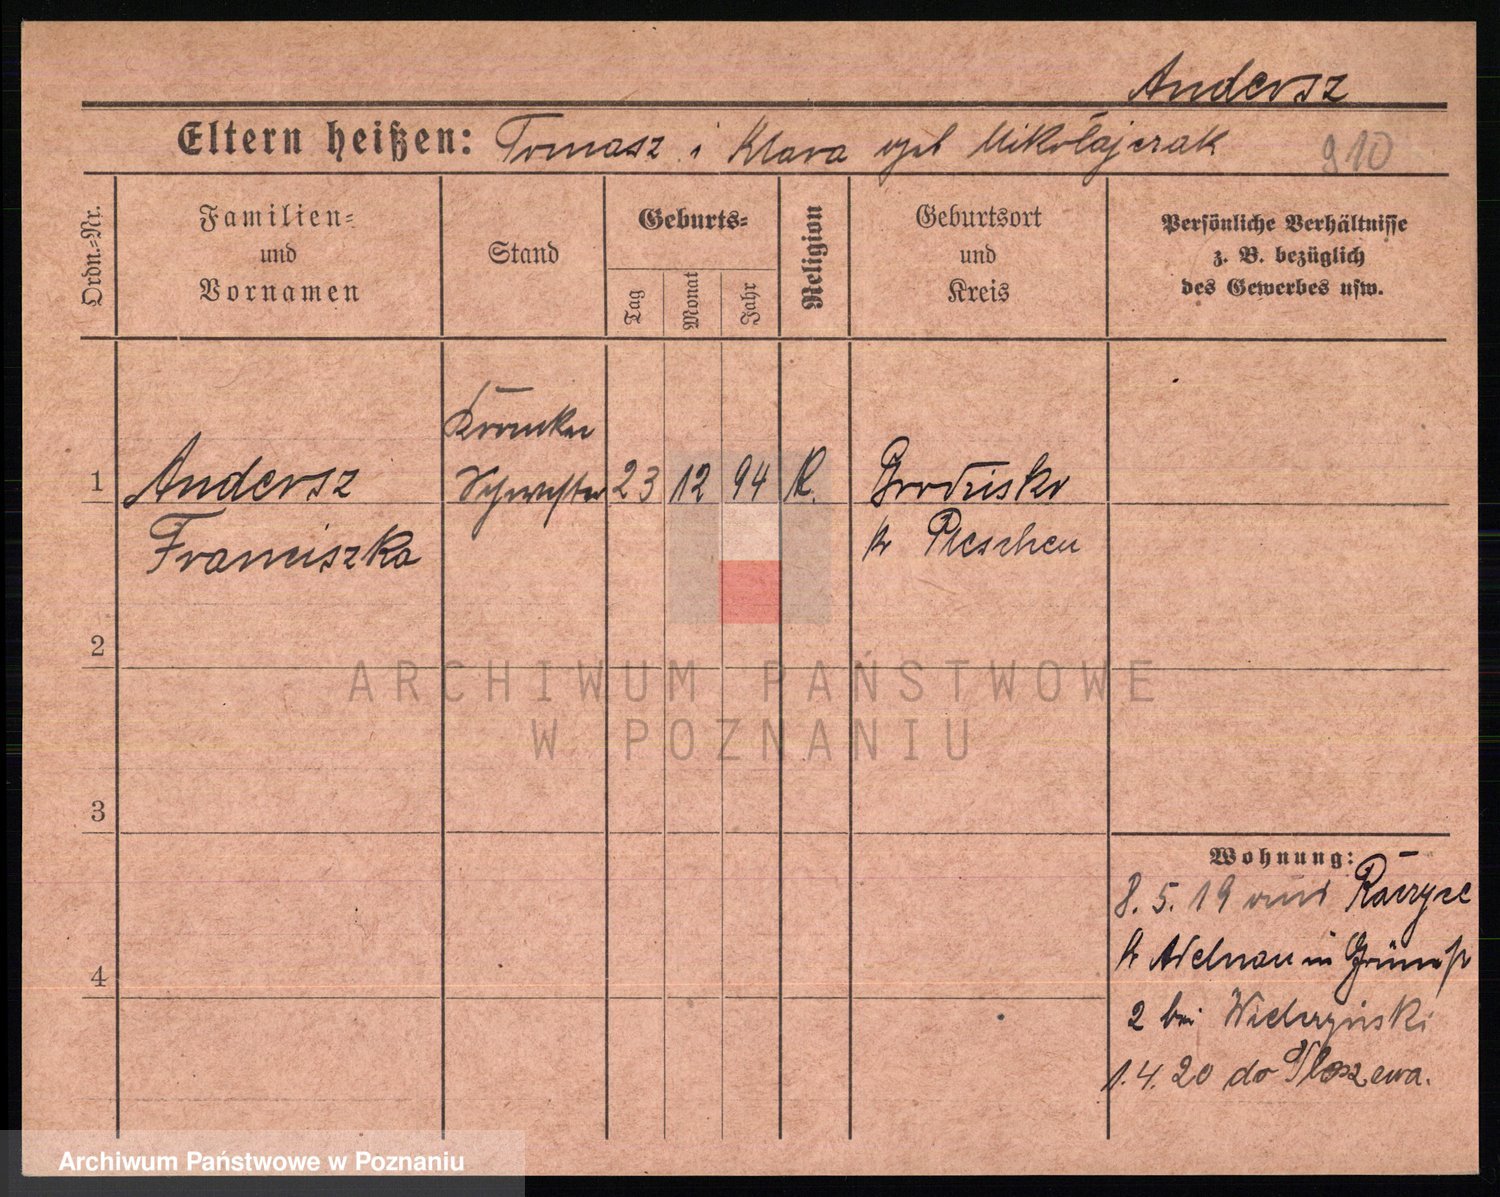 Andersz
Eltern heißen: Tomasz i Klara geb Mikołajczak 910
Ordn.=Nr.
Familien=
und
Vornamen
Stand
Geburts=
Tag
Monat
Jahr
Religion
Geburtsort
und
Kreis
Persönliche Verhältnisse
z. B. bezüglich
des Gewerbes usw.
Kranken
1 Andersz Schwester 23 12 94 K. Grodzisko
Franciszka kr Pleschen
2
3
4
Wohnung:
8. 5. 19 aus
kr Adelnau in
2 bei
1. 4. 20 do
ARCHIWUM PAŃSTWOWE
W POZNANIU
Archiwum Państwowe w Poznaniu